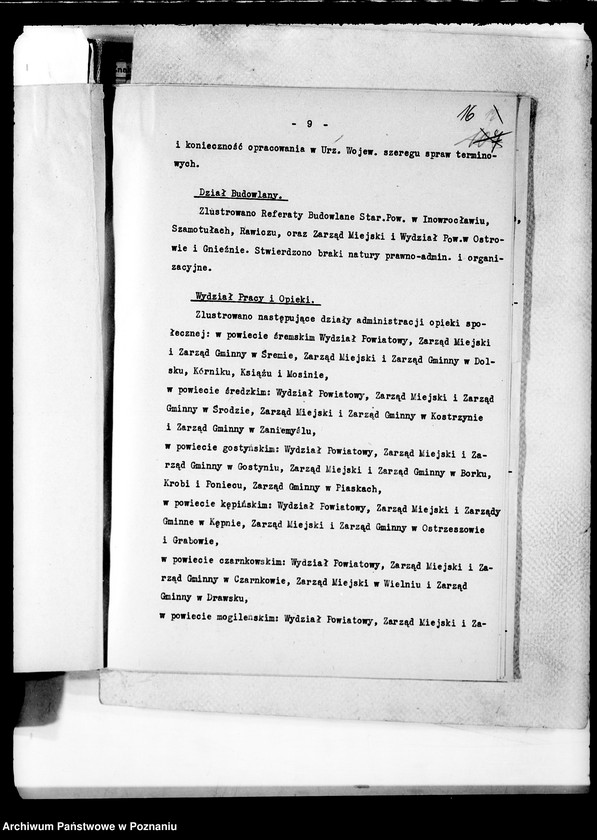 16
- 9 -
i konieczność opracowania w Urz. Wojew. szeregu spraw termino-
wych.
Dział Budowlany.
Zlustrowano Referaty Budowlane Star.Pow. w Inowrocławiu,
Szamotułach, Rawiczu, oraz Zarząd Miejski i Wydział Pow.w Ostro-
wie i Gnieźnie. Stwierdzono braki natury prawno-admin. i organi-
zacyjne.
Wydział Pracy i Opieki.
Zlustrowano następujące działy administracji opieki spo-
łecznej: w powiecie śremskim Wydział Powiatowy, Zarząd Miejski
i Zarząd Gminny w Śremie, Zarząd Miejski i Zarząd Gminny w Dol-
sku, Kórniku, Książu i Mosinie,
w powiecie średzkim: Wydział Powiatowy, Zarząd Miejski i Zarząd
Gminny w Środzie, Zarząd Miejski i Zarząd Gminny w Kostrzynie
i Zarząd Gminny w Zaniemyślu,
w powiecie gostyńskim: Wydział Powiatowy, Zarząd Miejski i Za-
rząd Gminny w Gostyniu, Zarząd Miejski i Zarząd Gminny w Borku,
Krobi i Poniecu, Zarząd Gminny w Piaskach,
w powiecie kępińskim: Wydział Powiatowy, Zarząd Miejski i Zarządy
Gminne w Kępnie, Zarząd Miejski i Zarząd Gminny w Ostrzeszowie
i Grabowie,
w powiecie czarnkowskim: Wydział Powiatowy, Zarząd Miejski i Za-
rząd Gminny w Czarnkowie, Zarząd Miejski w Wieluniu i Zarząd
Gminny w Drawsku,
w powiecie mogileńskim: Wydział Powiatowy, Zarząd Miejski i Za-
Archiwum Państwowe w Poznaniu